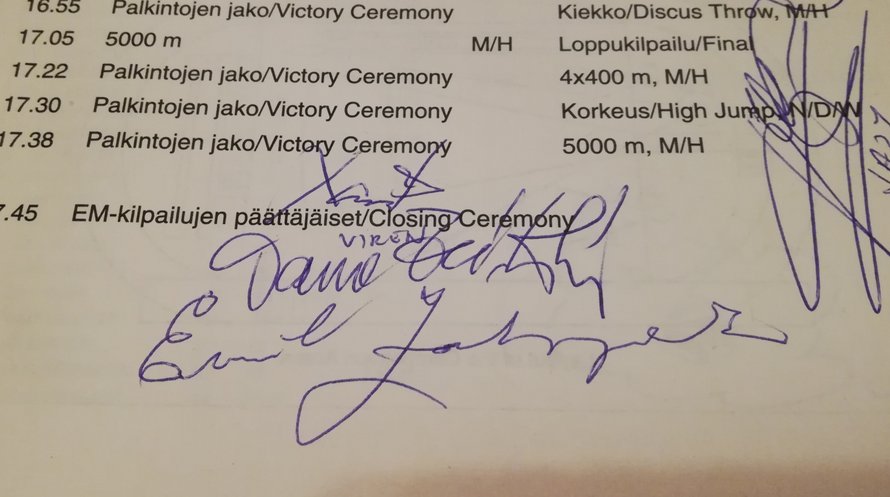 16.55 Palkintojen jako/Victory Ceremony Kiekko/Discus Throw, M/H
17.05 5000 m M/H Loppukilpailu/Final
17.22 Palkintojen jako/Victory Ceremony 4x400 m, M/H
17.30 Palkintojen jako/Victory Ceremony Korkeus/High Jump, N/D/W
17.38 Palkintojen jako/Victory Ceremony 5000 m, M/H
7.45 EM-kilpailujen päättäjäiset/Closing Ceremony
VIREN
Dana
Emil